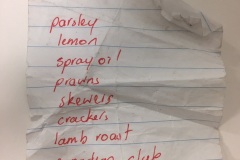 parsley
lemon
spray oil
prawns
skewers
crackers
lamb roast
club